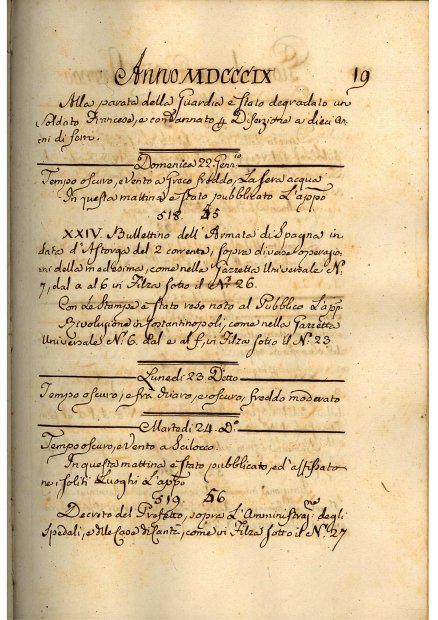 Anno MDCCCIX 19
Alla parata della Guardia e stato degradato un
Soldato Francese, e condannato p Diserzione a dieci an-
ni di ferri.
Domenica 22. Genn.io
Tempo oscuro, e Vento a Greco freddo, La sera acqua
In questa mattina e stato pubblicato L'app.o
518. 45
XXIV. Bullettino dell'Armata di Spagna in
data d'Astorga del 2 corrente, sopra diverse operazio-
ni della medesima, come nella Gazzetta Universale N.o
7, dal a al 6 in Filza sotto il N.o 26.
Con le Stampe e stato reso noto al Pubblico L'app.
Rivoluzione in Costantinopoli, come nella Gazzetta
Universale N.o 6. dal e al f, in Filza sotto il N.o 23
Lunedi 23. Detto
Tempo oscuro, e fra chiaro, e oscuro, freddo moderato
Martedi 24. D.o
Tempo oscuro, e Vento a Scilocco.
In questa mattina e stato pubblicato, ed'affissato
ne i soliti Luoghi L'app.o
519. 56
Decreto del Prefetto, sopra L'Amministraz.ne degli
Spedali, e delle Case di Carità, come in Filza sotto il N.o 27